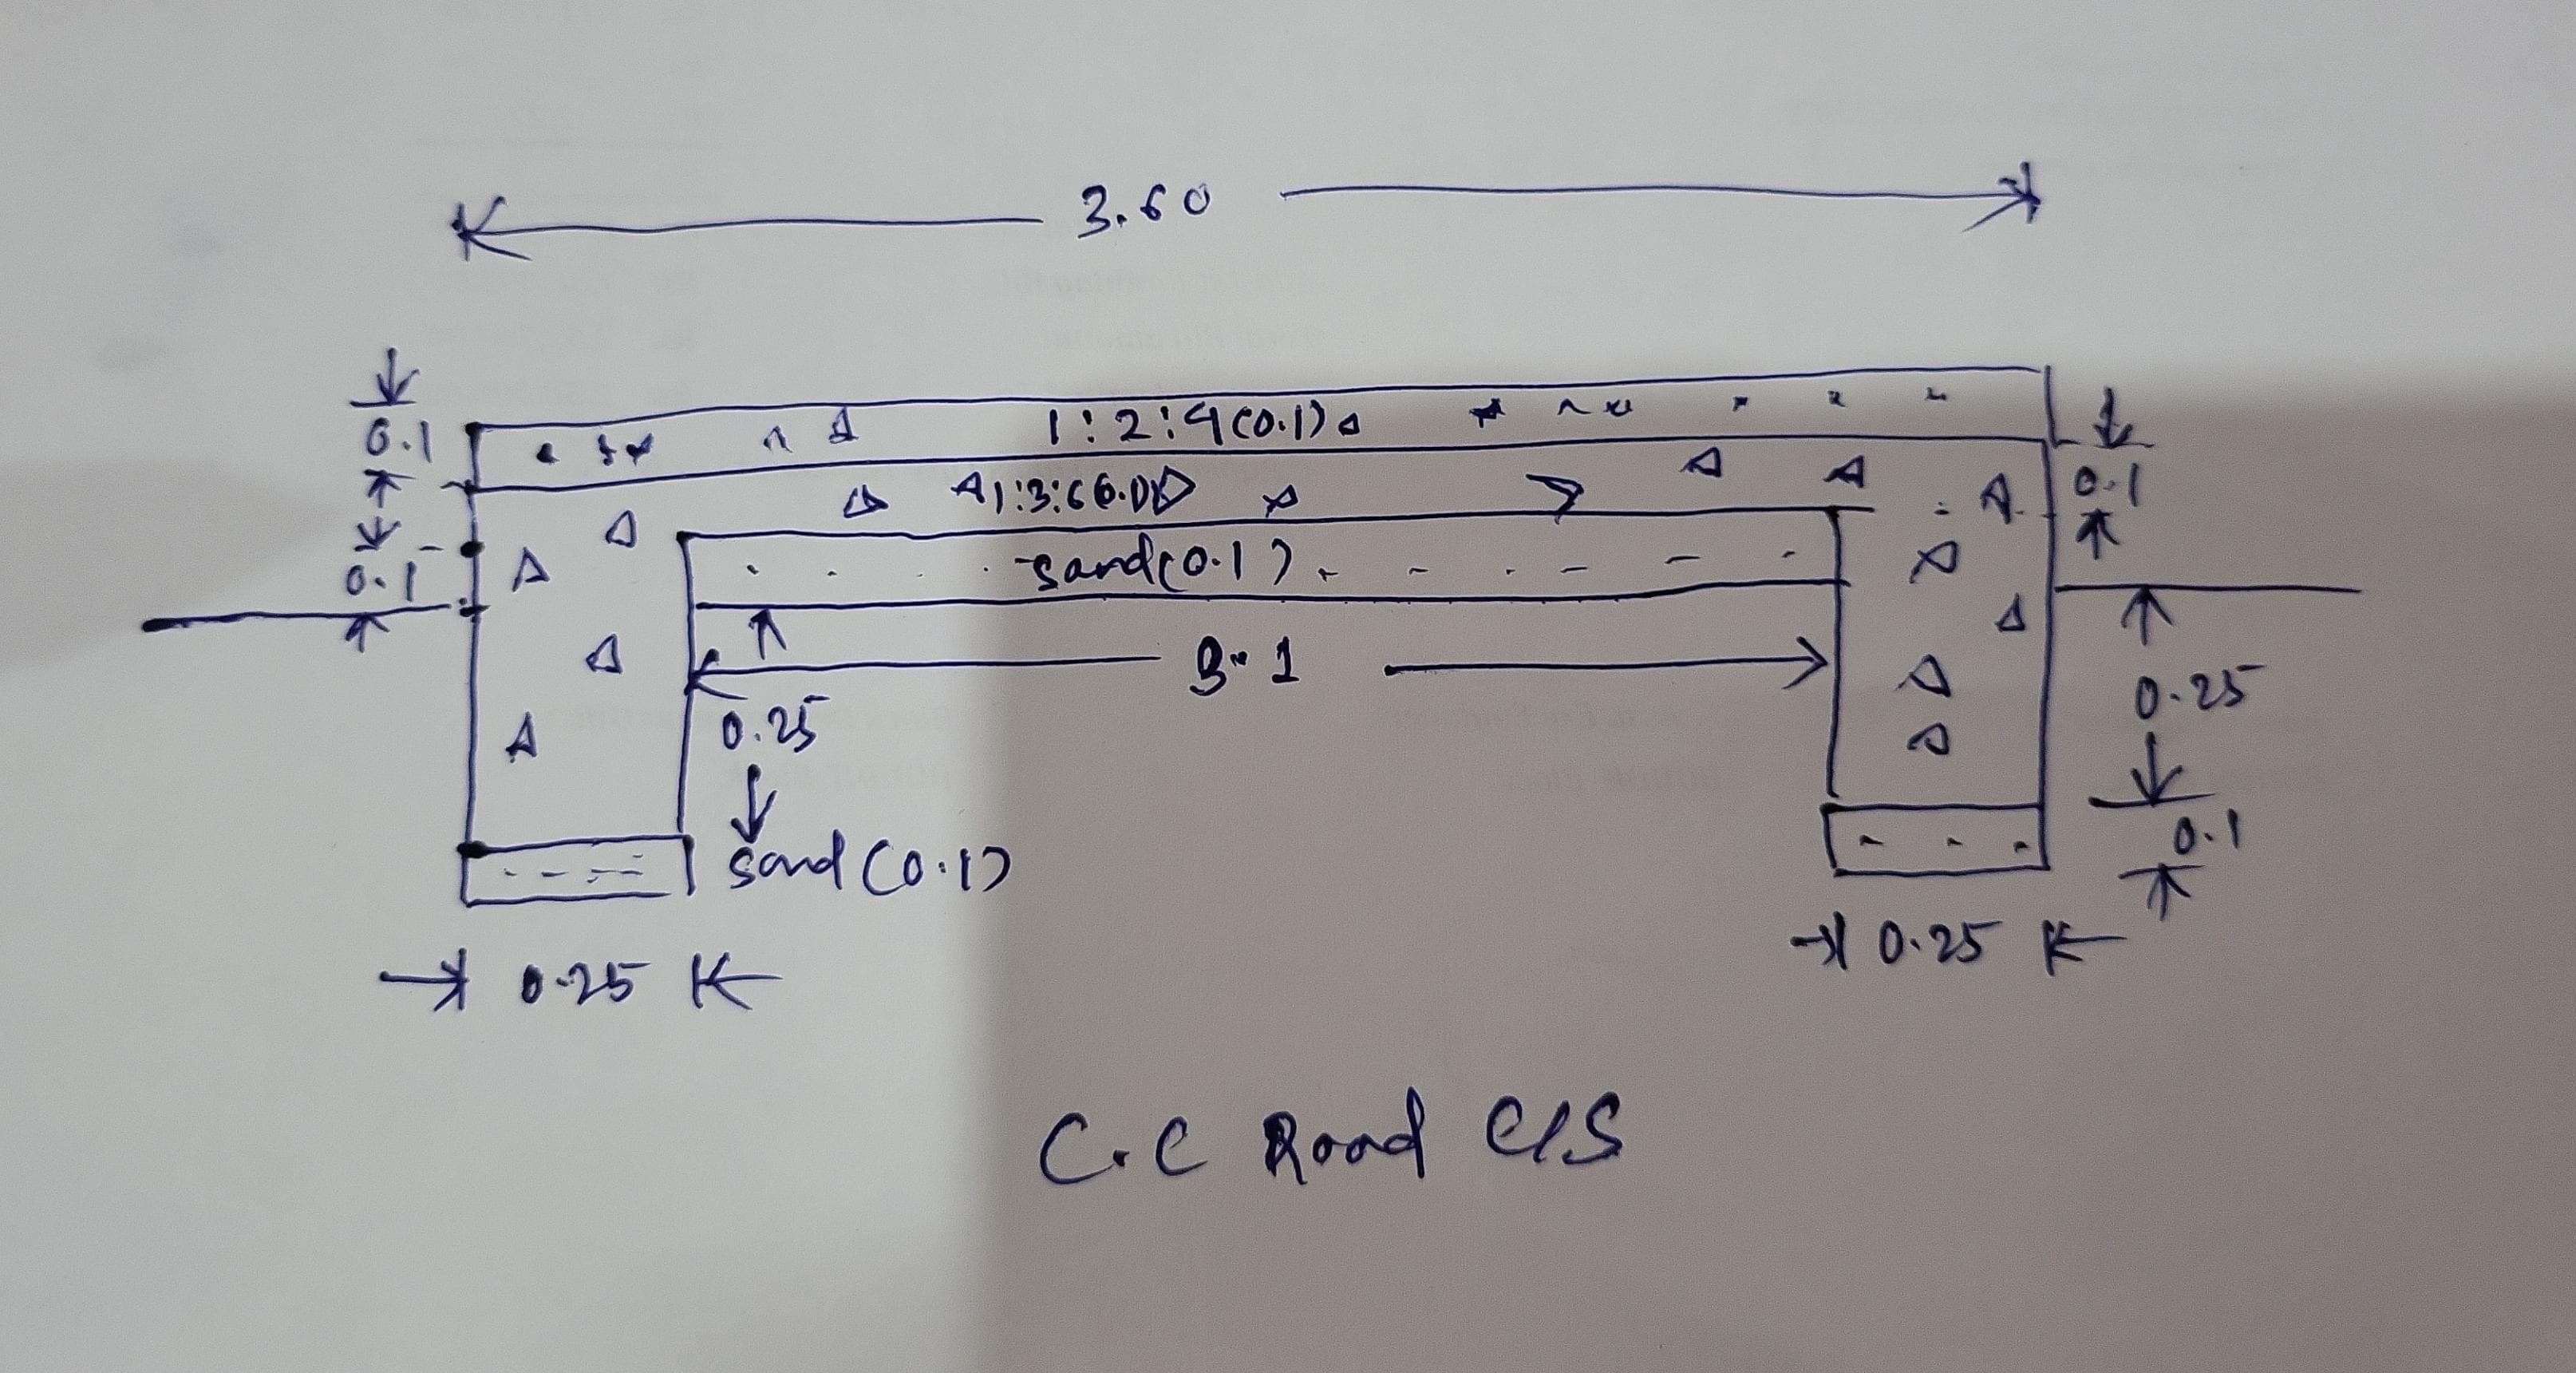 3.60
0.1
1:2:4(0.1)
0.1
1:3:6(0.1)
0.1
sand(0.1)
3.1
0.25
0.25
sand(0.1)
0.1
0.25
0.25
C.C Road C/S